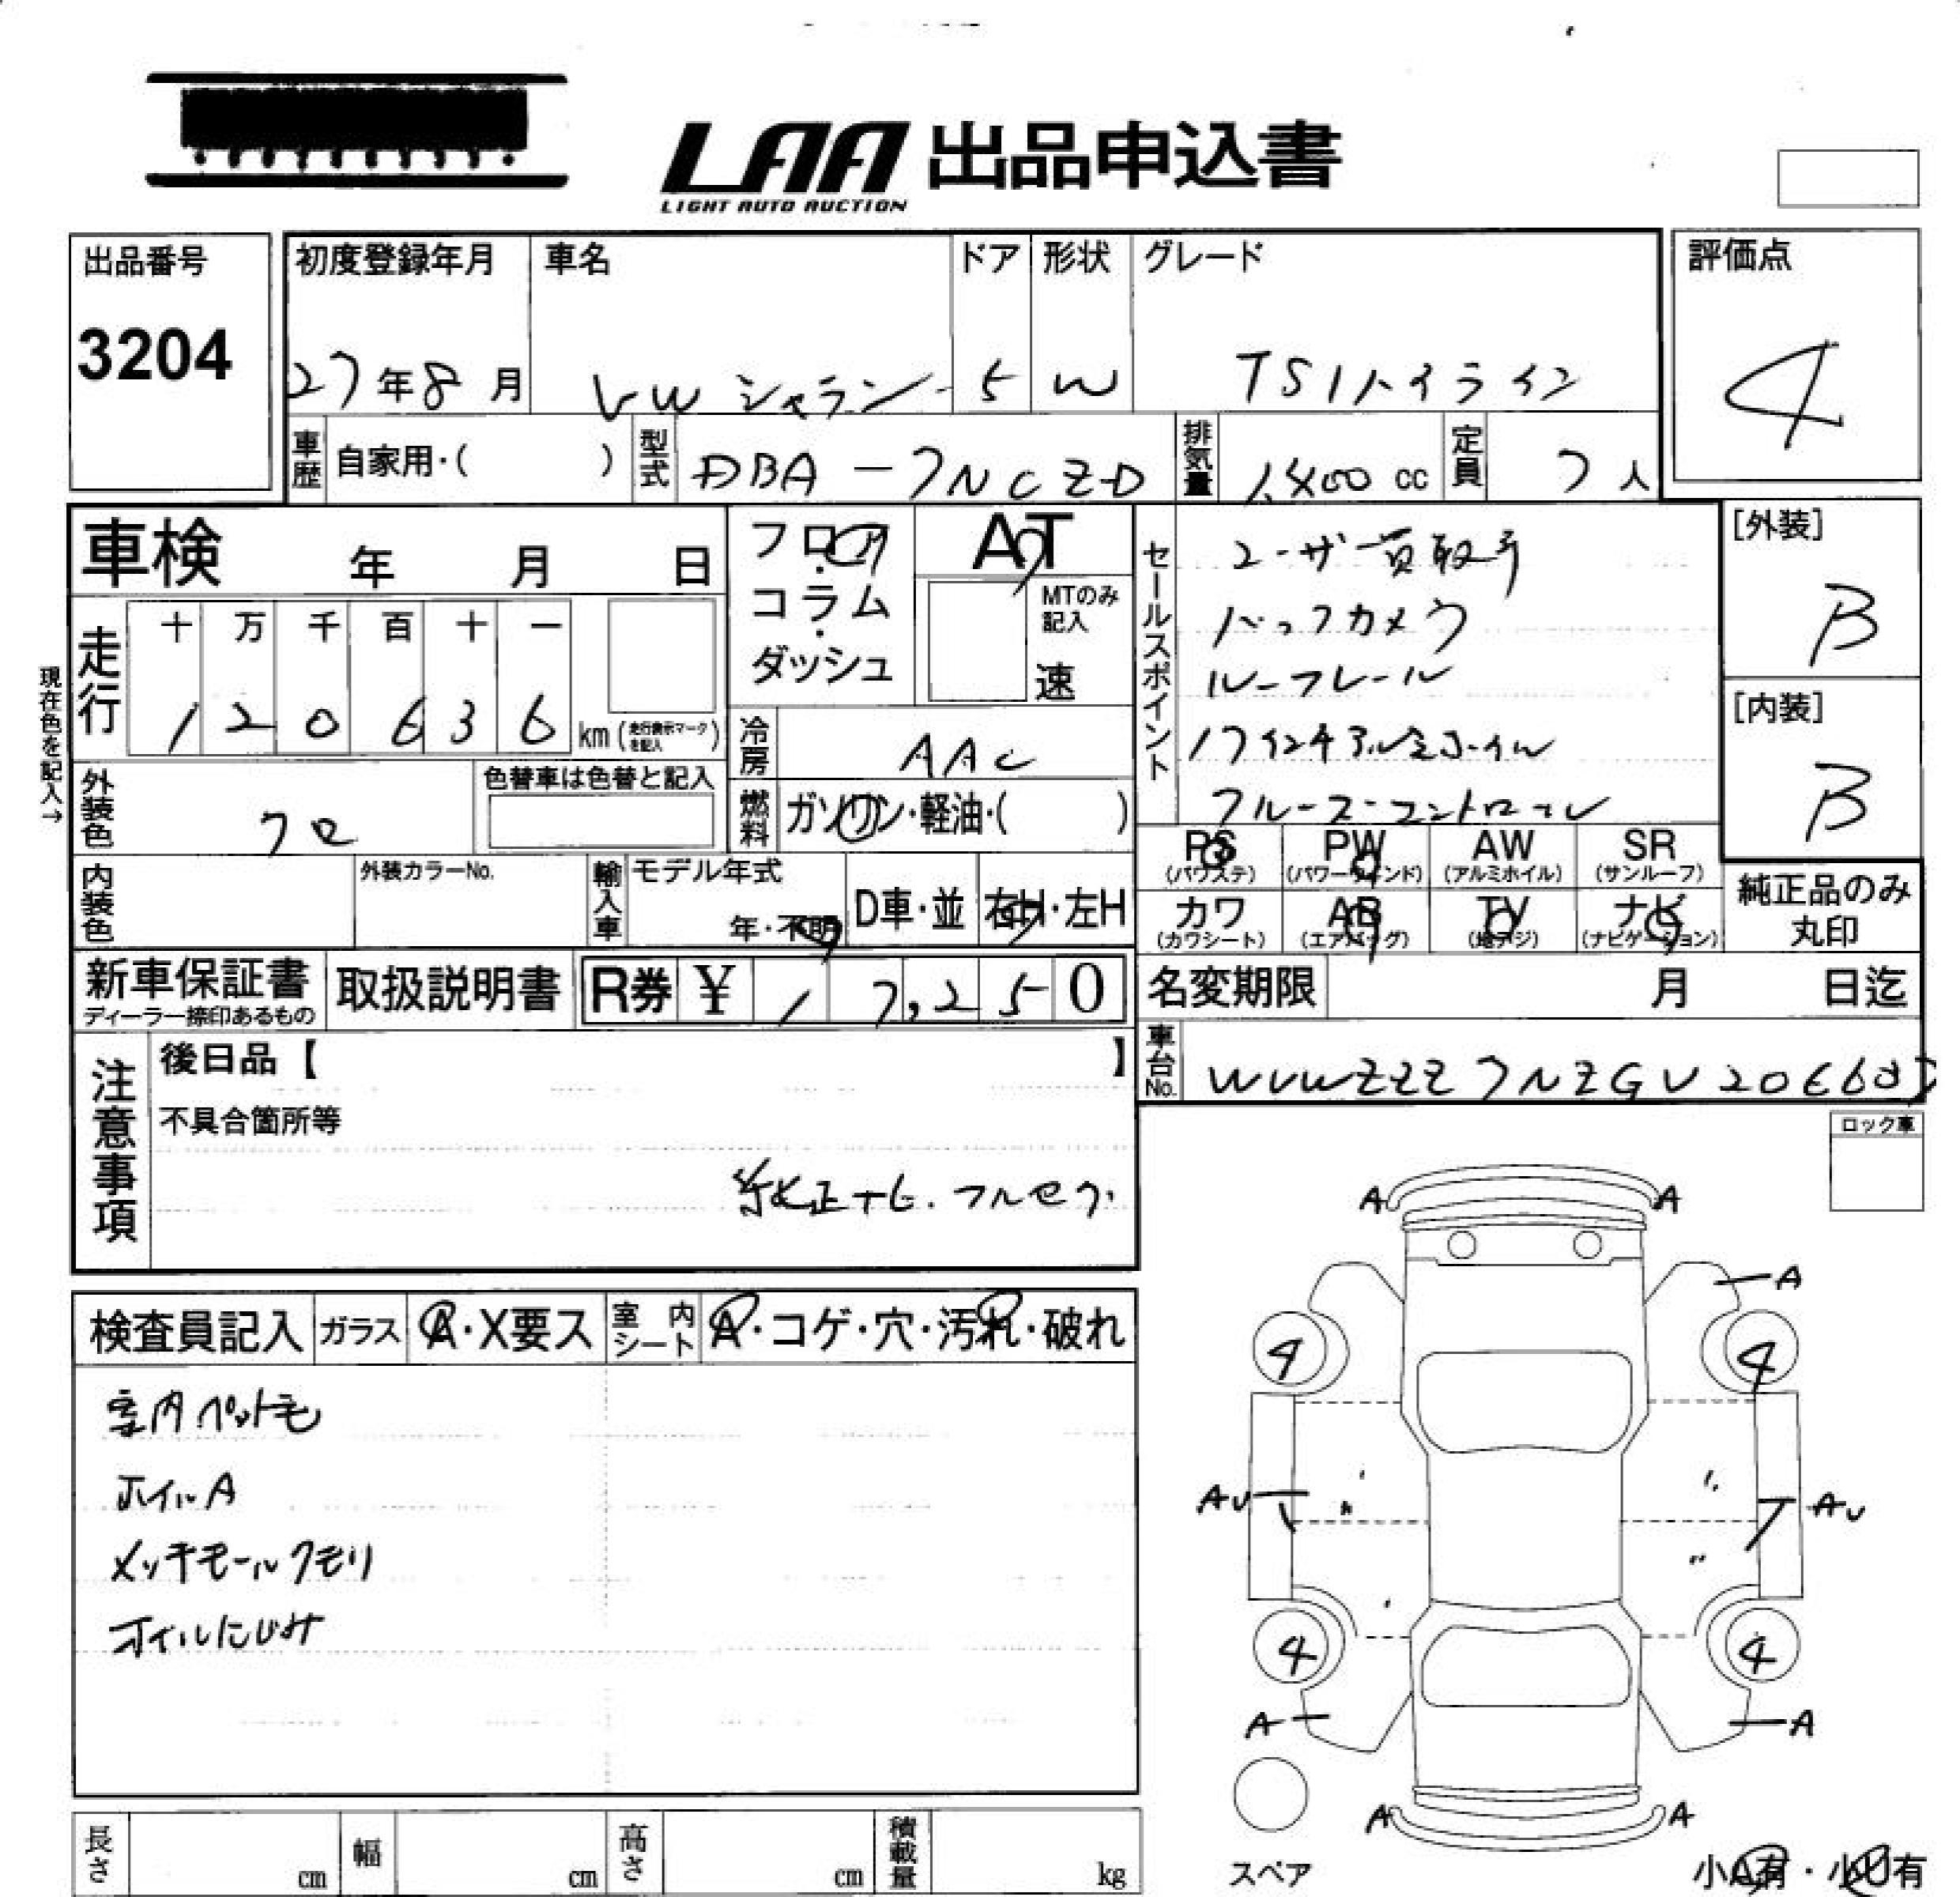 LAA 出品申込書
LIGHT AUTO AUCTION
出品番号
3204
初度登録年月
27年8月
車名
VW シャラン
ドア
5
形状
W
グレード
TSIハイライン
評価点
4
車歴
自家用・( )
型式
DBA-7NCZD
排気量
1,400 cc
定員
7人
車検 年 月 日
走行
十 万 千 百 十 一
1 2 0 6 3 6 km (走行表示マークを記入)
現在色を記入→
フロア
・
コラム
・
ダッシュ
AT
MTのみ記入
速
冷房
AAC
燃料
ガソリン・軽油・( )
外装色
クロ
色替車は色替と記入
内装色
外装カラーNo.
輸入車
モデル年式
年・不明
D車・並
右H・左H
セールスポイント
ユーザー買取車
バックカメラ
ルーフレール
17インチアルミホイル
クルーズコントロール
[外装]
B
[内装]
B
PS
(パワステ)
PW
(パワーウインド)
AW
(アルミホイル)
SR
(サンルーフ)
カワ
(カワシート)
AB
(エアバッグ)
TV
(地デジ)
ナビ
(ナビゲーション)
純正品のみ
丸印
新車保証書
ディーラー捺印あるもの
取扱説明書
R券 ¥ 17,250
名変期限 月 日迄
車台No.
WVWZZZ7NZGV20660
注意事項
後日品【 】
不具合箇所等
純正ナビ.フルセグ.
ロック車
検査員記入
ガラス
A・X要ス
室内シート
A・コゲ・穴・汚れ・破れ
室内ペット毛
ホイルA
メッキモールクモリ
オイルにじみ
A A
A
4 4
AU AU
4 4
A A
A A
スペア
小A有・小U有
長さ cm
幅 cm
高さ cm
積載量 kg